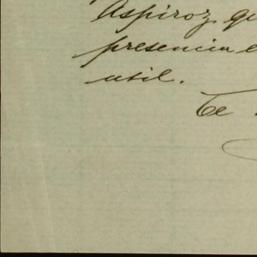 Aspiroz qu
presencia e
util.
Te